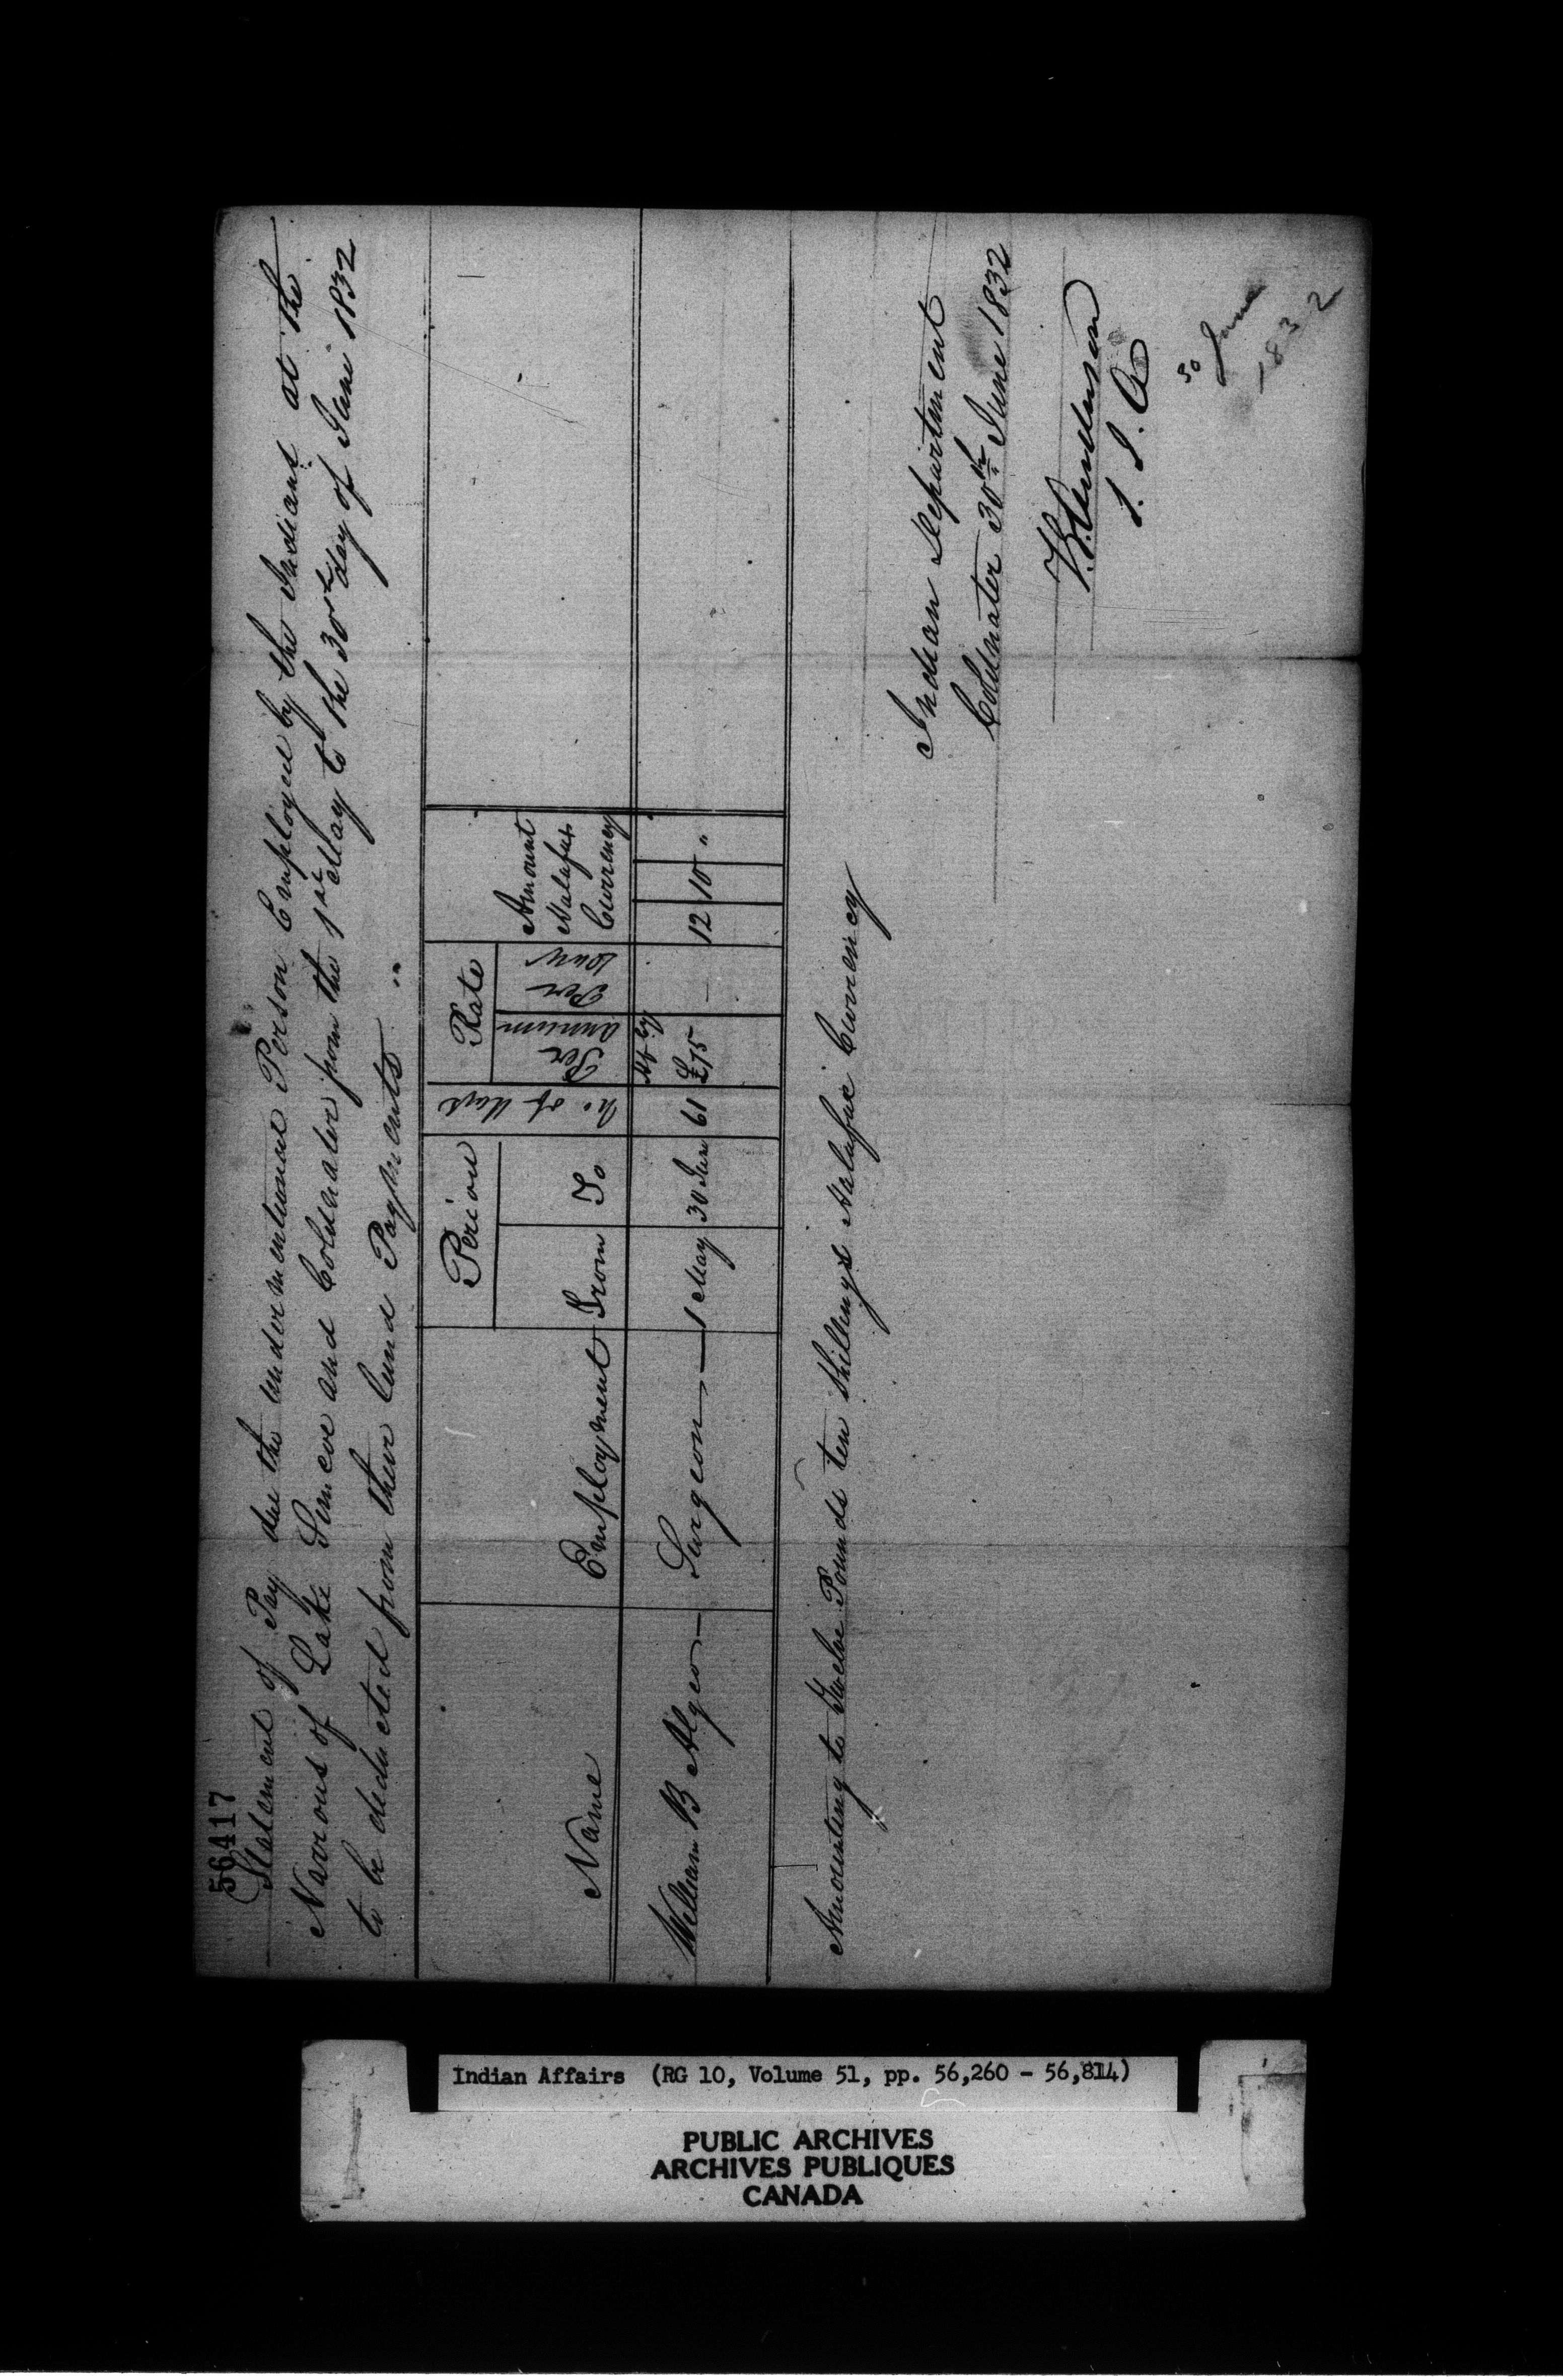 56417
Statement of Pay due the undermentioned Person Employed by the Indians at the
Narrows of Lake Simcoe and Coldwater from the 1st May to the 30th day of June 1832
to be deducted from their land Payments
Name
Employment
Period
From
To
No. of days
Rate
Per annum
Per
Amount
Halifax
Currency
William B Algeo — Surgeon — 1 May 30 June 61 £75 — 12 10 "
Amounting to Twelve Pounds ten Shillings Halifax Currency
Indian Department
Coldwater 30th June 1832
T G Anderson
S. I. A
30 June
1832
Indian Affairs (RG 10, Volume 51, pp. 56,260 - 56,814)
PUBLIC ARCHIVES
ARCHIVES PUBLIQUES
CANADA